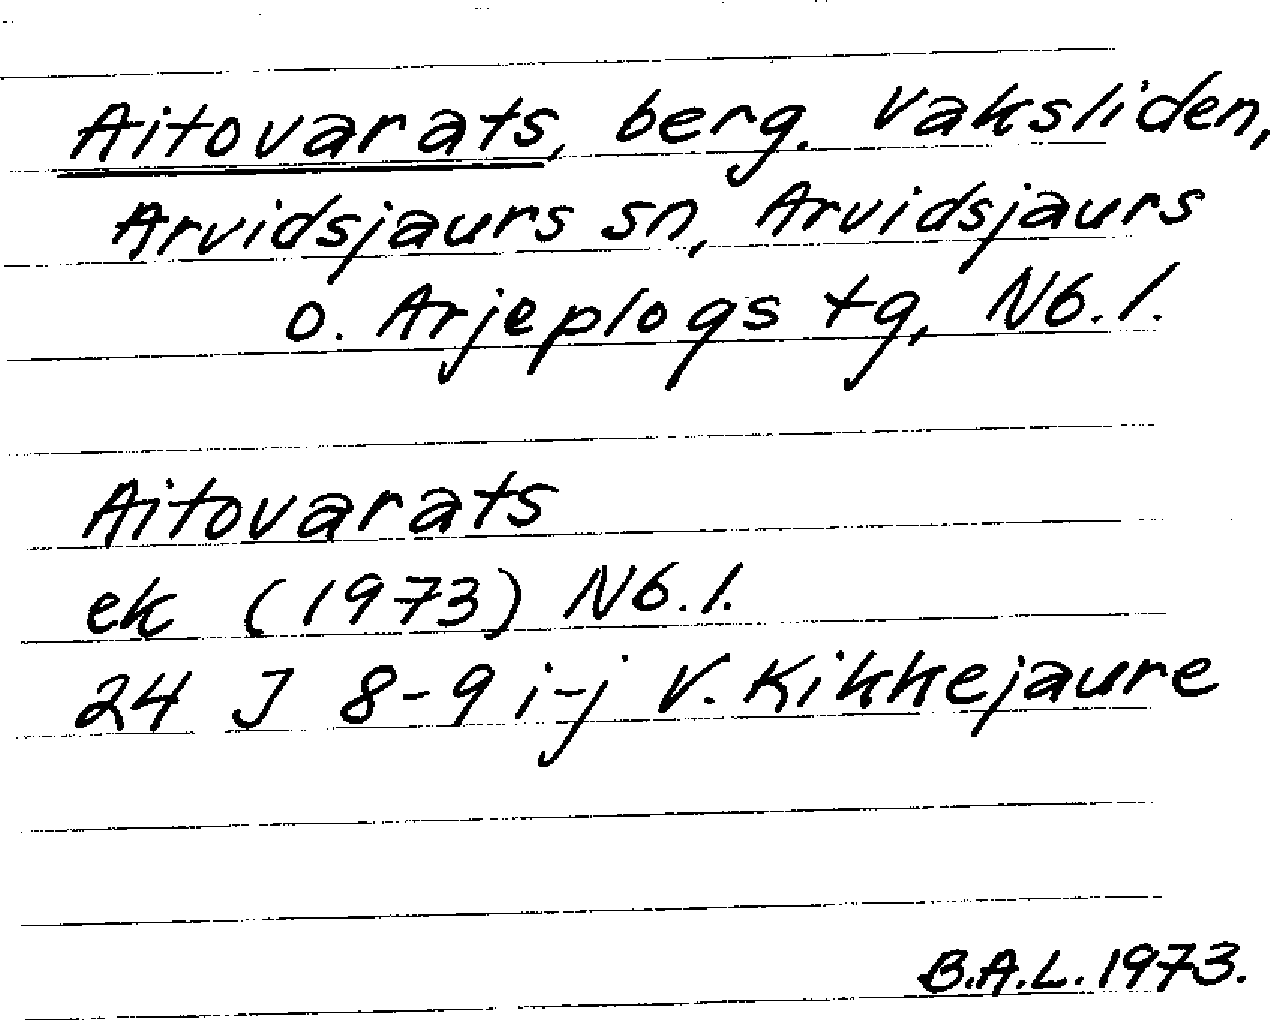 Aitovarats, berg. Vaksliden,
Arvidsjaurs sn, Arvidsjaurs
o. Arjeplogs tg, Nb. l.
Aitovarats
ek (1973) Nb. l.
24 J 8-9 i-j V. Kikkejaure
B.A.L. 1973.